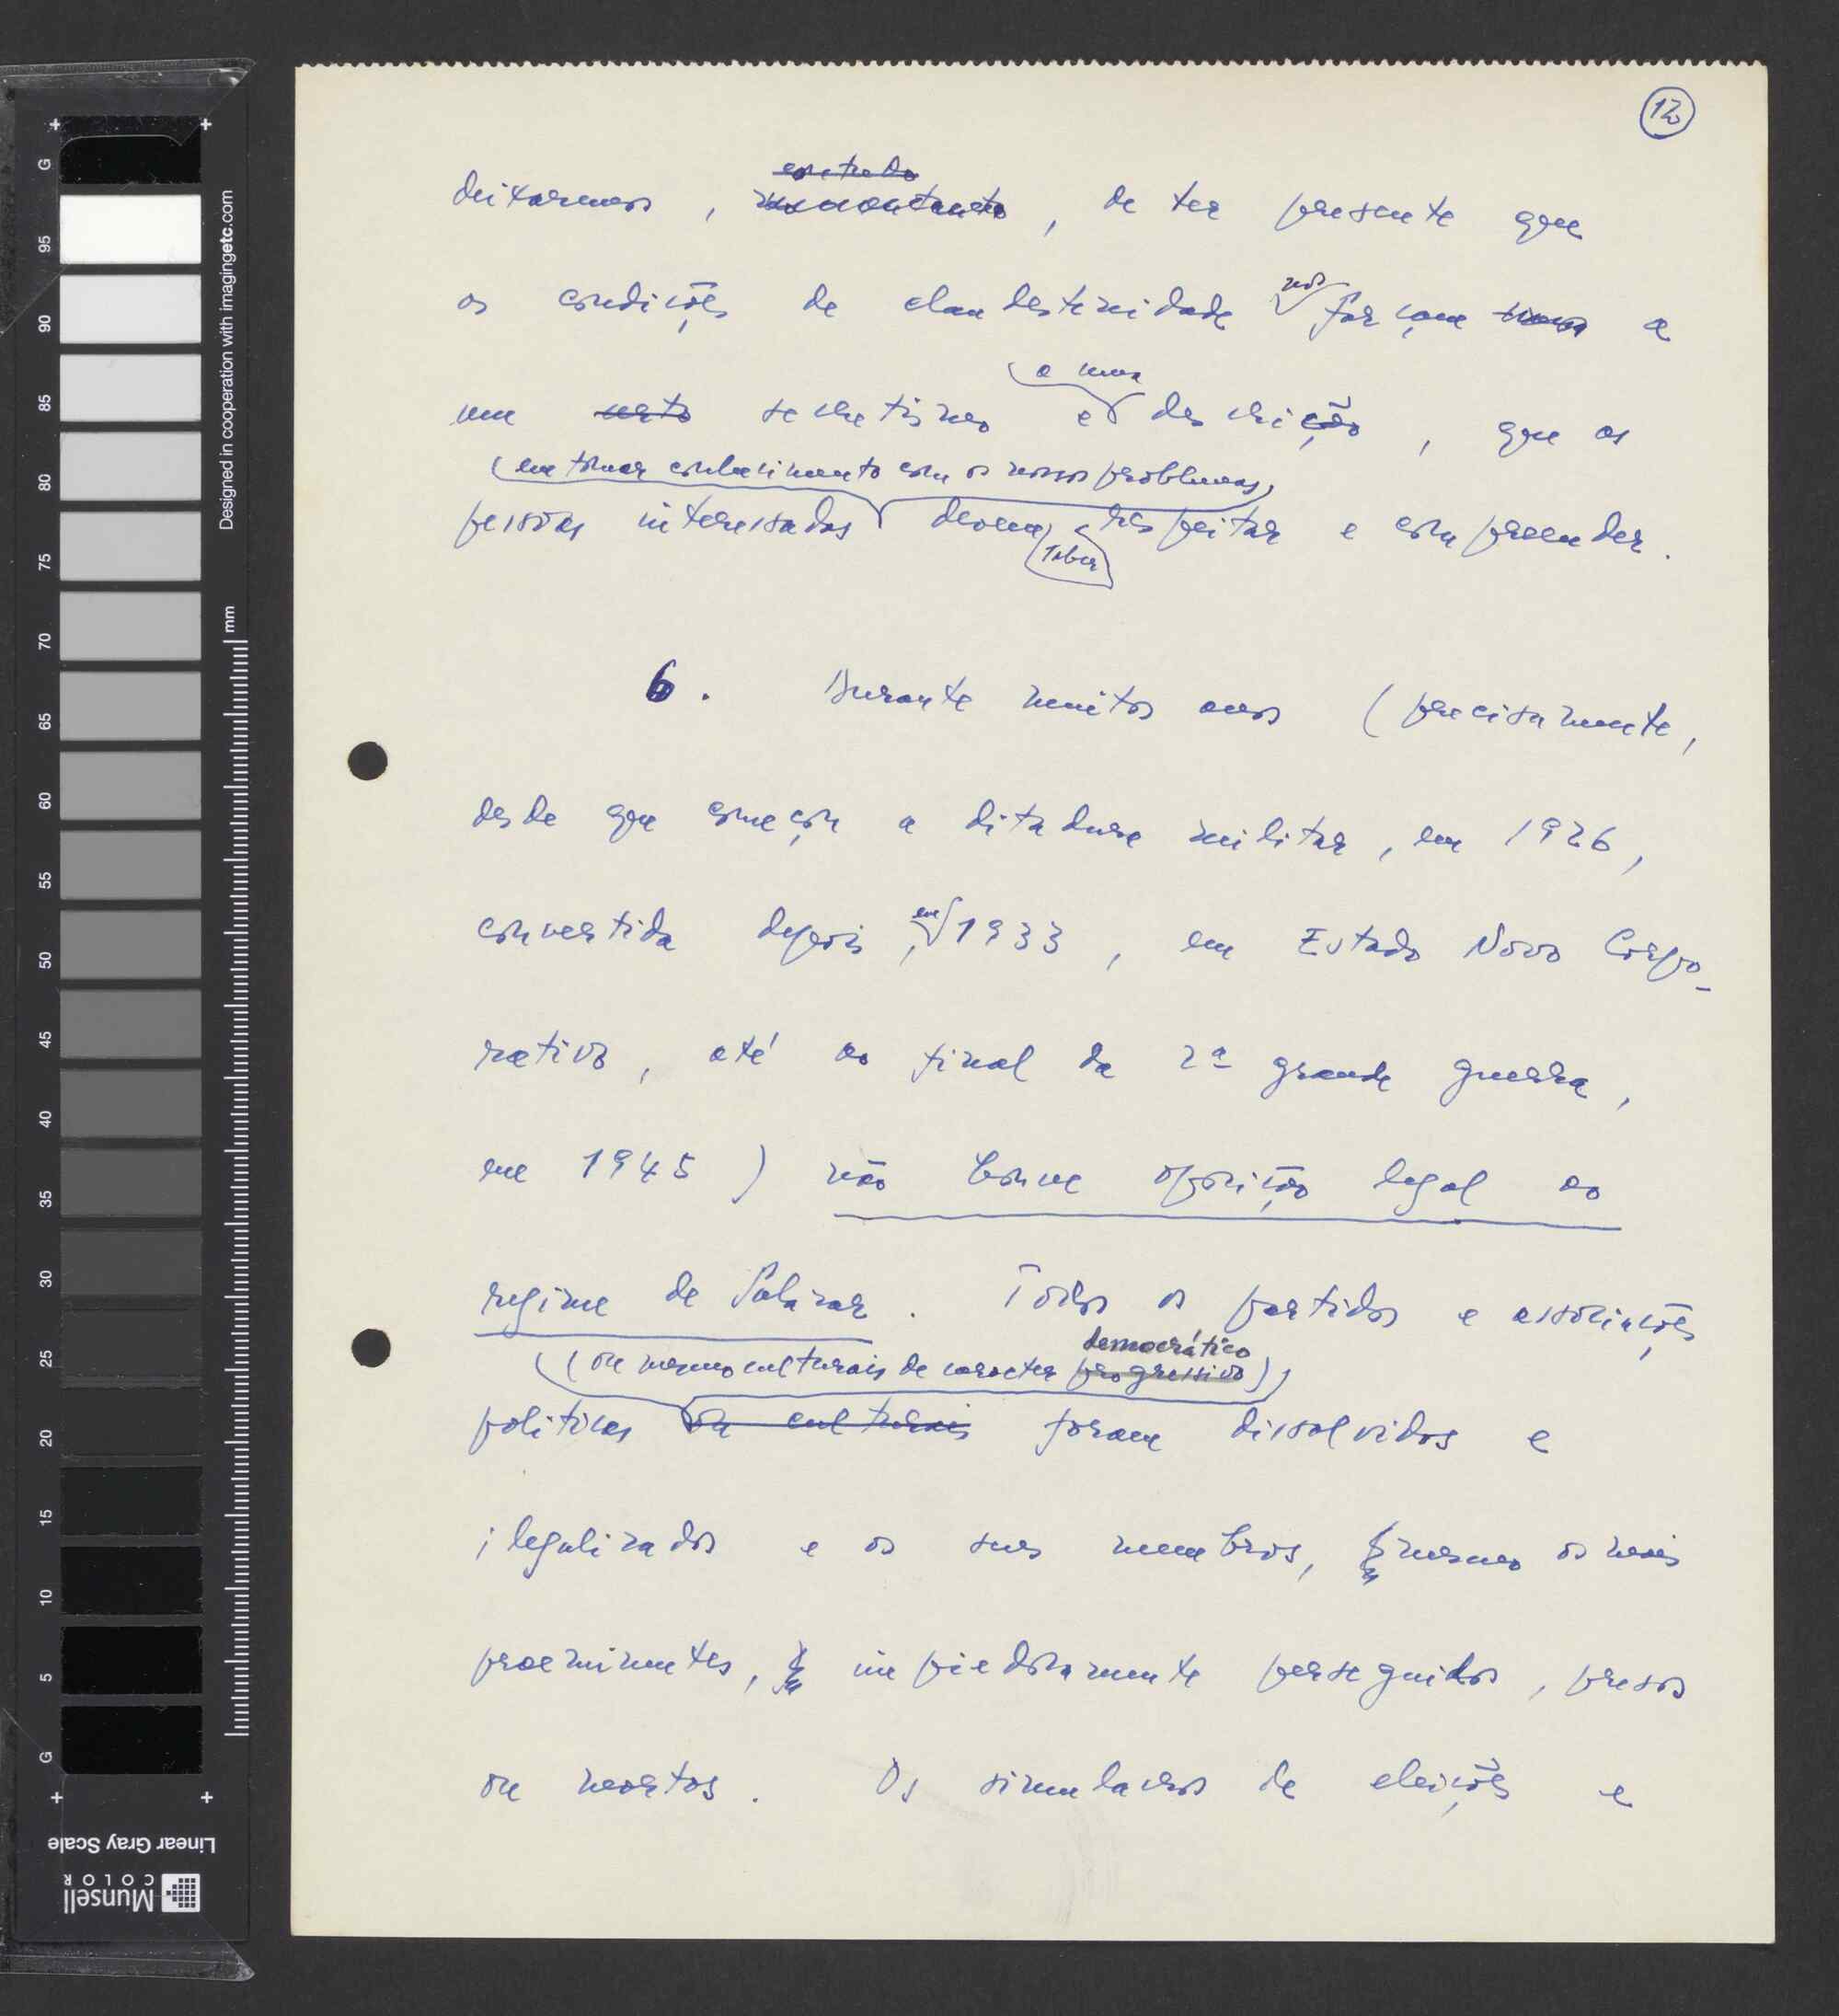 12
contudo
deixarmos, no entanto, de ter presente que
nos
as condições de clandestinidade forçam-nos a
a uma
um certo secretismo e discrição, que as
em tomar conhecimento com os nossos problemas,
pessoas interessadas devem respeitar e compreender.
saber
6. Durante muitos anos (precisamente,
desde que começou a ditadura militar, em 1926,
em
convertida depois, 1933, em Estado Novo Corpo-
rativo, até ao final da 2ª grande guerra,
em 1945) não houve oposição legal ao
regime de Salazar. Todos os partidos e associações
democrático
(ou mesmo culturais de caracter progressivo)
políticas ou culturais foram dissolvidos e
ilegalizados e os seus membros, mesmo os mais
proeminentes, impiedosamente perseguidos, presos
ou mortos. Os simulacros de eleições e
Designed in cooperation with imagingetc.com
mm
G 95 90 85 80 75 70 65 60 55 50 45 40 35 30 25 20 15 10 5 G
Linear Gray Scale
Munsell
COLOR